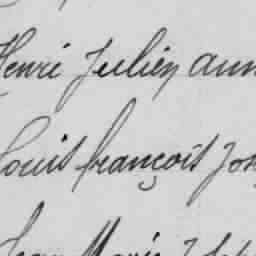 Henri Julien ann
Louis françois Jos
Jean Marie J